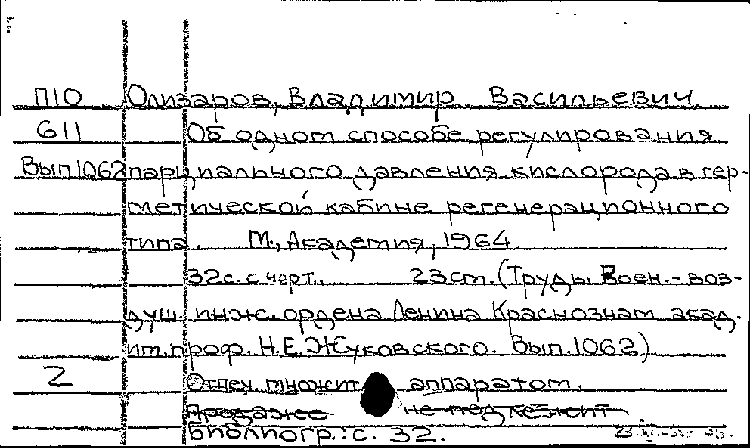 П10 Олизаров, Владимир Васильевич
611 Об одном способе регулирования
Вып1062 парциального давления кислорода в гер-
метической кабине регенерационного
типа. М., Академия, 1964
32с. с черт. 23см. (Труды Воен.-воз-
душ. инж. ордена Ленина Краснознам. акад.
им. проф. Н.Е. Жуковского. Вып. 1062)
2 Отпеч. множит. аппаратом.
Продаже не подлежит
Библиогр.: с. 32.